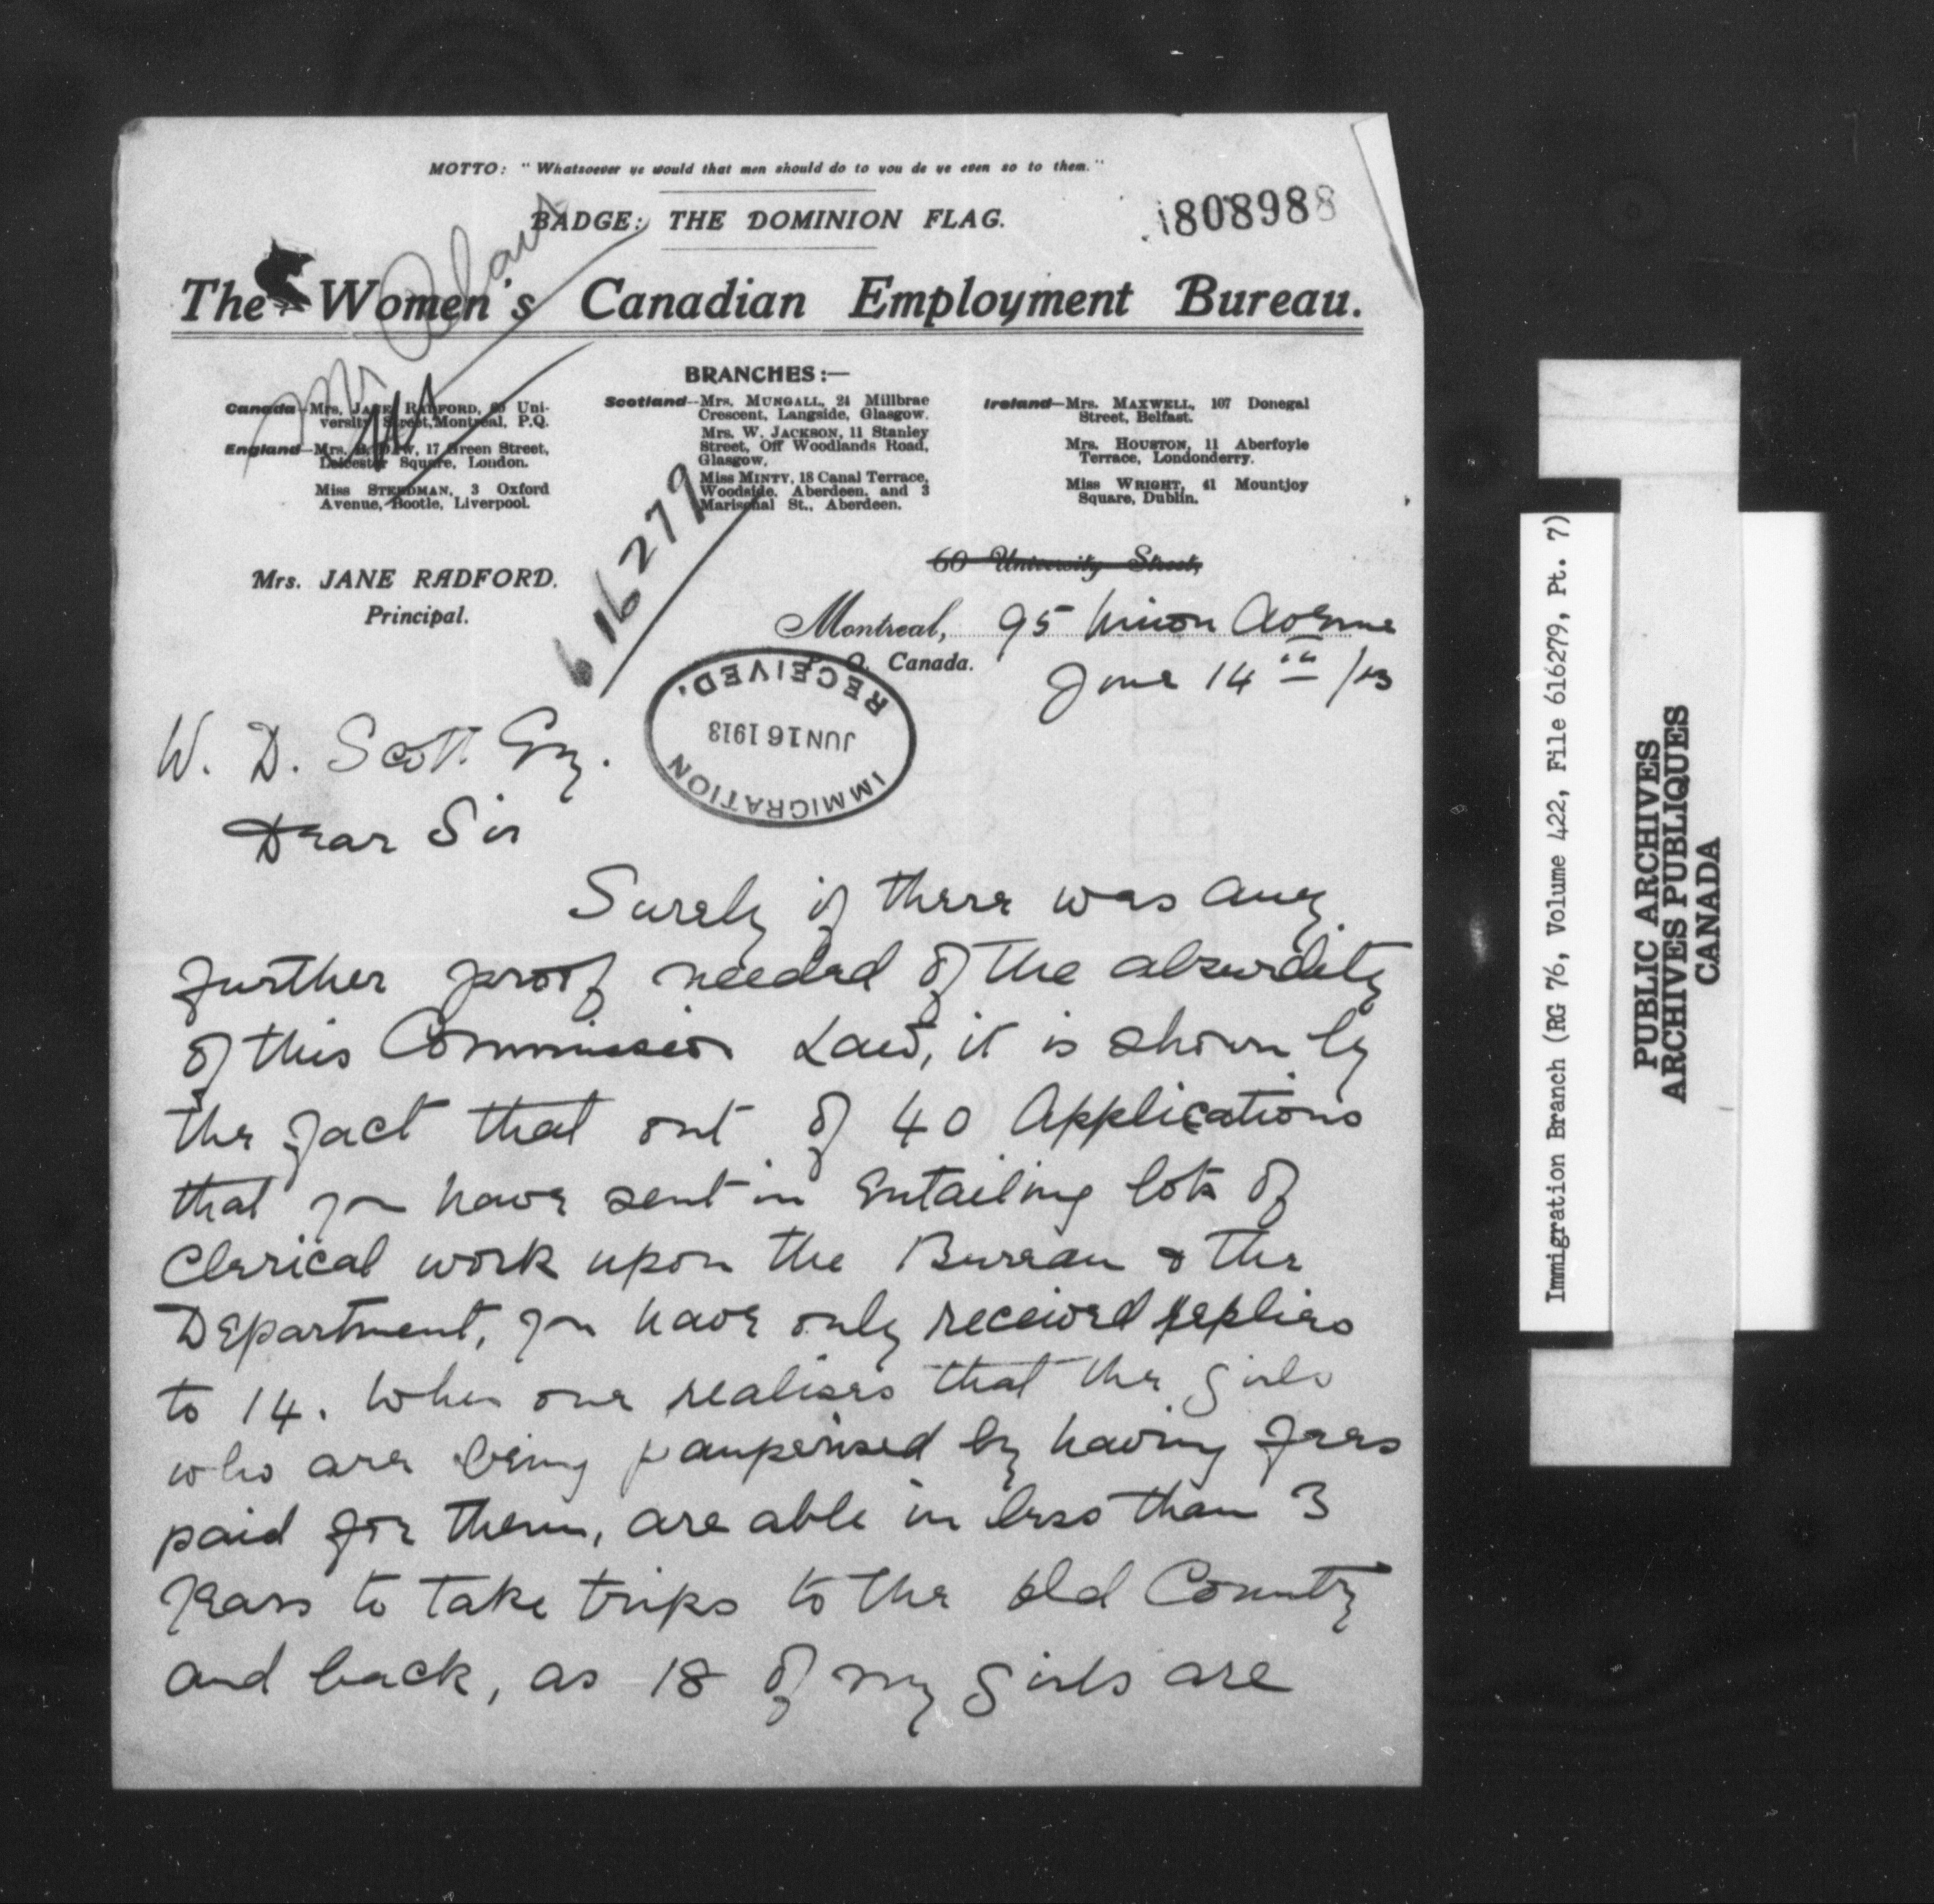 MOTTO: "Whatsoever ye would that men should do to you do ye even so to them."
BADGE: THE DOMINION FLAG.
1808988
The Women's Canadian Employment Bureau.
BRANCHES:—
Canada—Mrs. JANE RADFORD, 60 Uni-
versity Street, Montreal, P.Q.
England—Mrs. 17 Green Street,
Leicester Square, London.
Miss STEEDMAN, 3 Oxford
Avenue, Bootle, Liverpool.
Scotland—Mrs. MUNGALL, 24 Millbrae
Crescent, Langside, Glasgow.
Mrs. W. JACKSON, 11 Stanley
Street, Off Woodlands Road,
Glasgow.
Miss MINTY, 18 Canal Terrace,
Woodside, Aberdeen, and 3
Marischal St., Aberdeen.
Ireland—Mrs. MAXWELL, 107 Donegal
Street, Belfast.
Mrs. HOUSTON, 11 Aberfoyle
Terrace, Londonderry.
Miss WRIGHT, 41 Mountjoy
Square, Dublin.
616279
Mrs. JANE RADFORD.
Principal.
60 University Street,
Montreal, 95 Union Avenue
Canada.
June 14th /13
RECEIVED.
JUN 16 1913
IMMIGRATION
W. D. Scott Esq.
Dear Sir
Surely if there was any
further proof needed of the absurdity
of this Commission Law, it is shown by
the fact that out of 40 Applications
that you have sent in Entailing lots of
Clerical work upon the Bureau & the
Department, you have only received replies
to 14. When one realises that the girls
who are being pauperised by having fares
paid for them, are able in less than 3
years to take trips to the old Country
and back, as 18 of my girls are
Immigration Branch (RG 76, Volume 422, File 616279, Pt. 7)
PUBLIC ARCHIVES
ARCHIVES PUBLIQUES
CANADA